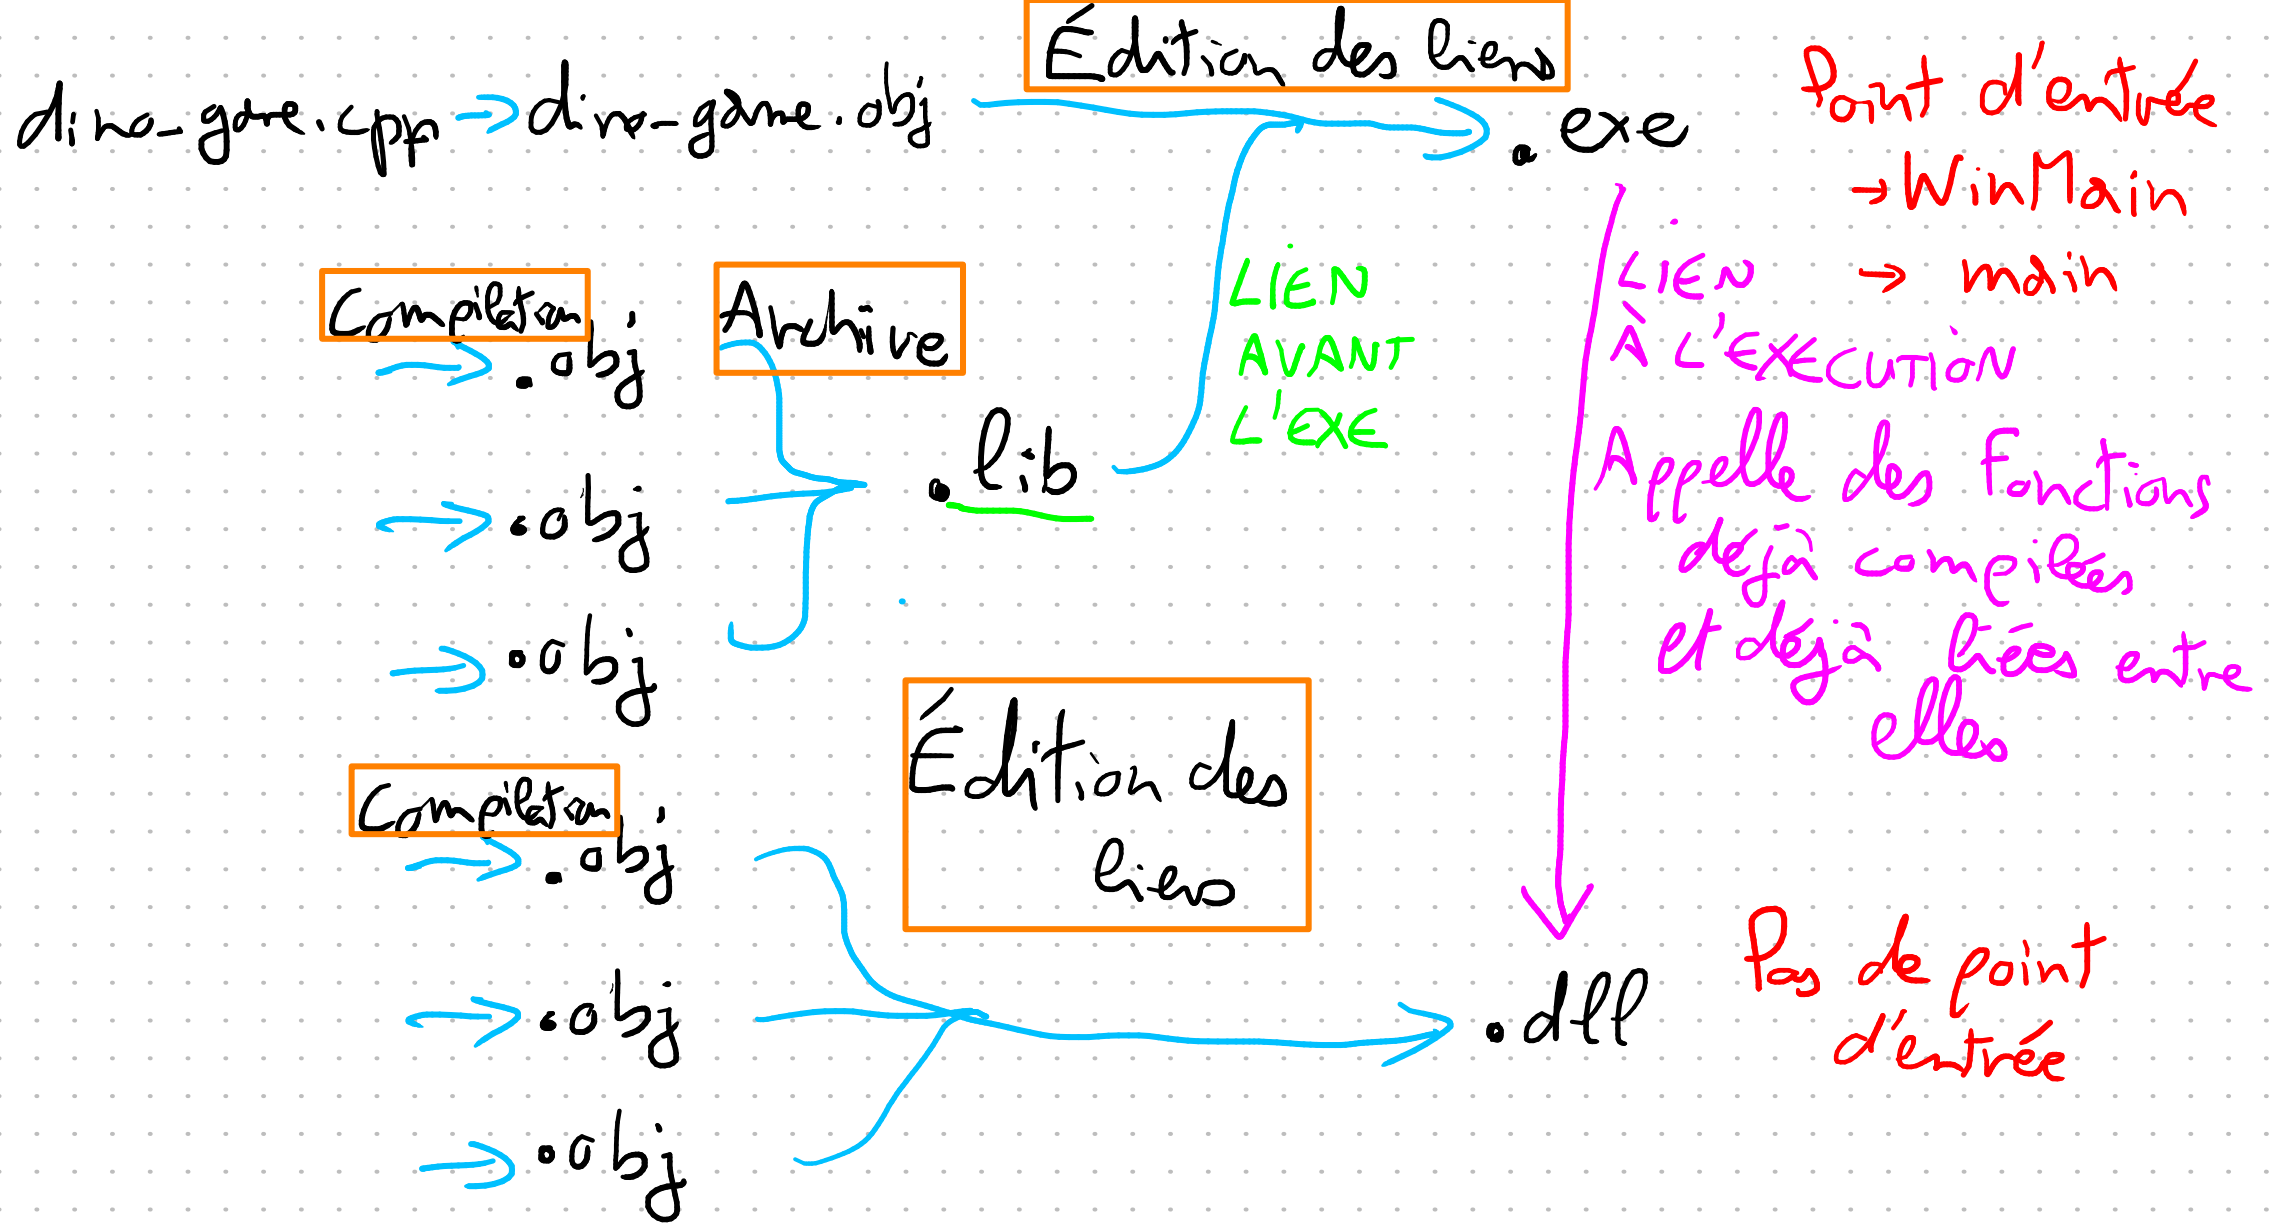 Édition des liens
dino-game.cpp → dino-game.obj
.exe
Point d'entrée
→ WinMain
→ main
Compilation
.obj
.obj
.obj
Archive
.lib
LIEN
AVANT
L'EXE
LIEN
À L'EXECUTION
Appelle des fonctions
déjà compilées
et déjà liées entre
elles
Compilation
.obj
.obj
.obj
Édition des
liens
.dll
Pas de point
d'entrée